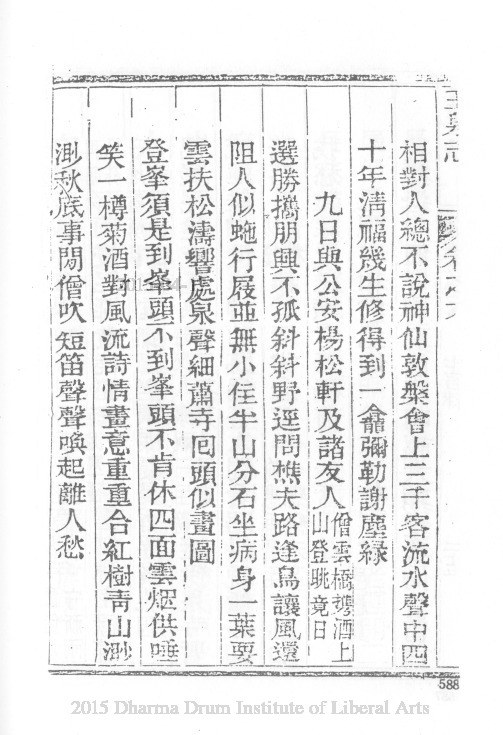 玉泉志
相對人總不說神仙敦槃會上三千客流水聲中四
十年淸福幾生修得到一龕彌勒謝塵緣
九日與公安楊松軒及諸友人僧雲橋攜酒上山登眺竟日
選勝攜朋興不孤斜斜野逕問樵夫路逢鳥讓風還
阻人似虵行屐並無小住半山分石坐病身一葉要
雲扶松濤響處泉聲細蕭寺囘頭似畫圖
登峯須是到峯頭不到峯頭不肯休四面雲烟供唾
笑一樽菊酒對風流詩情畫意重重合紅樹靑山渺
渺秋底事閒僧吹短笛聲聲喚起離人愁
588
2015 Dharma Drum Institute of Liberal Arts